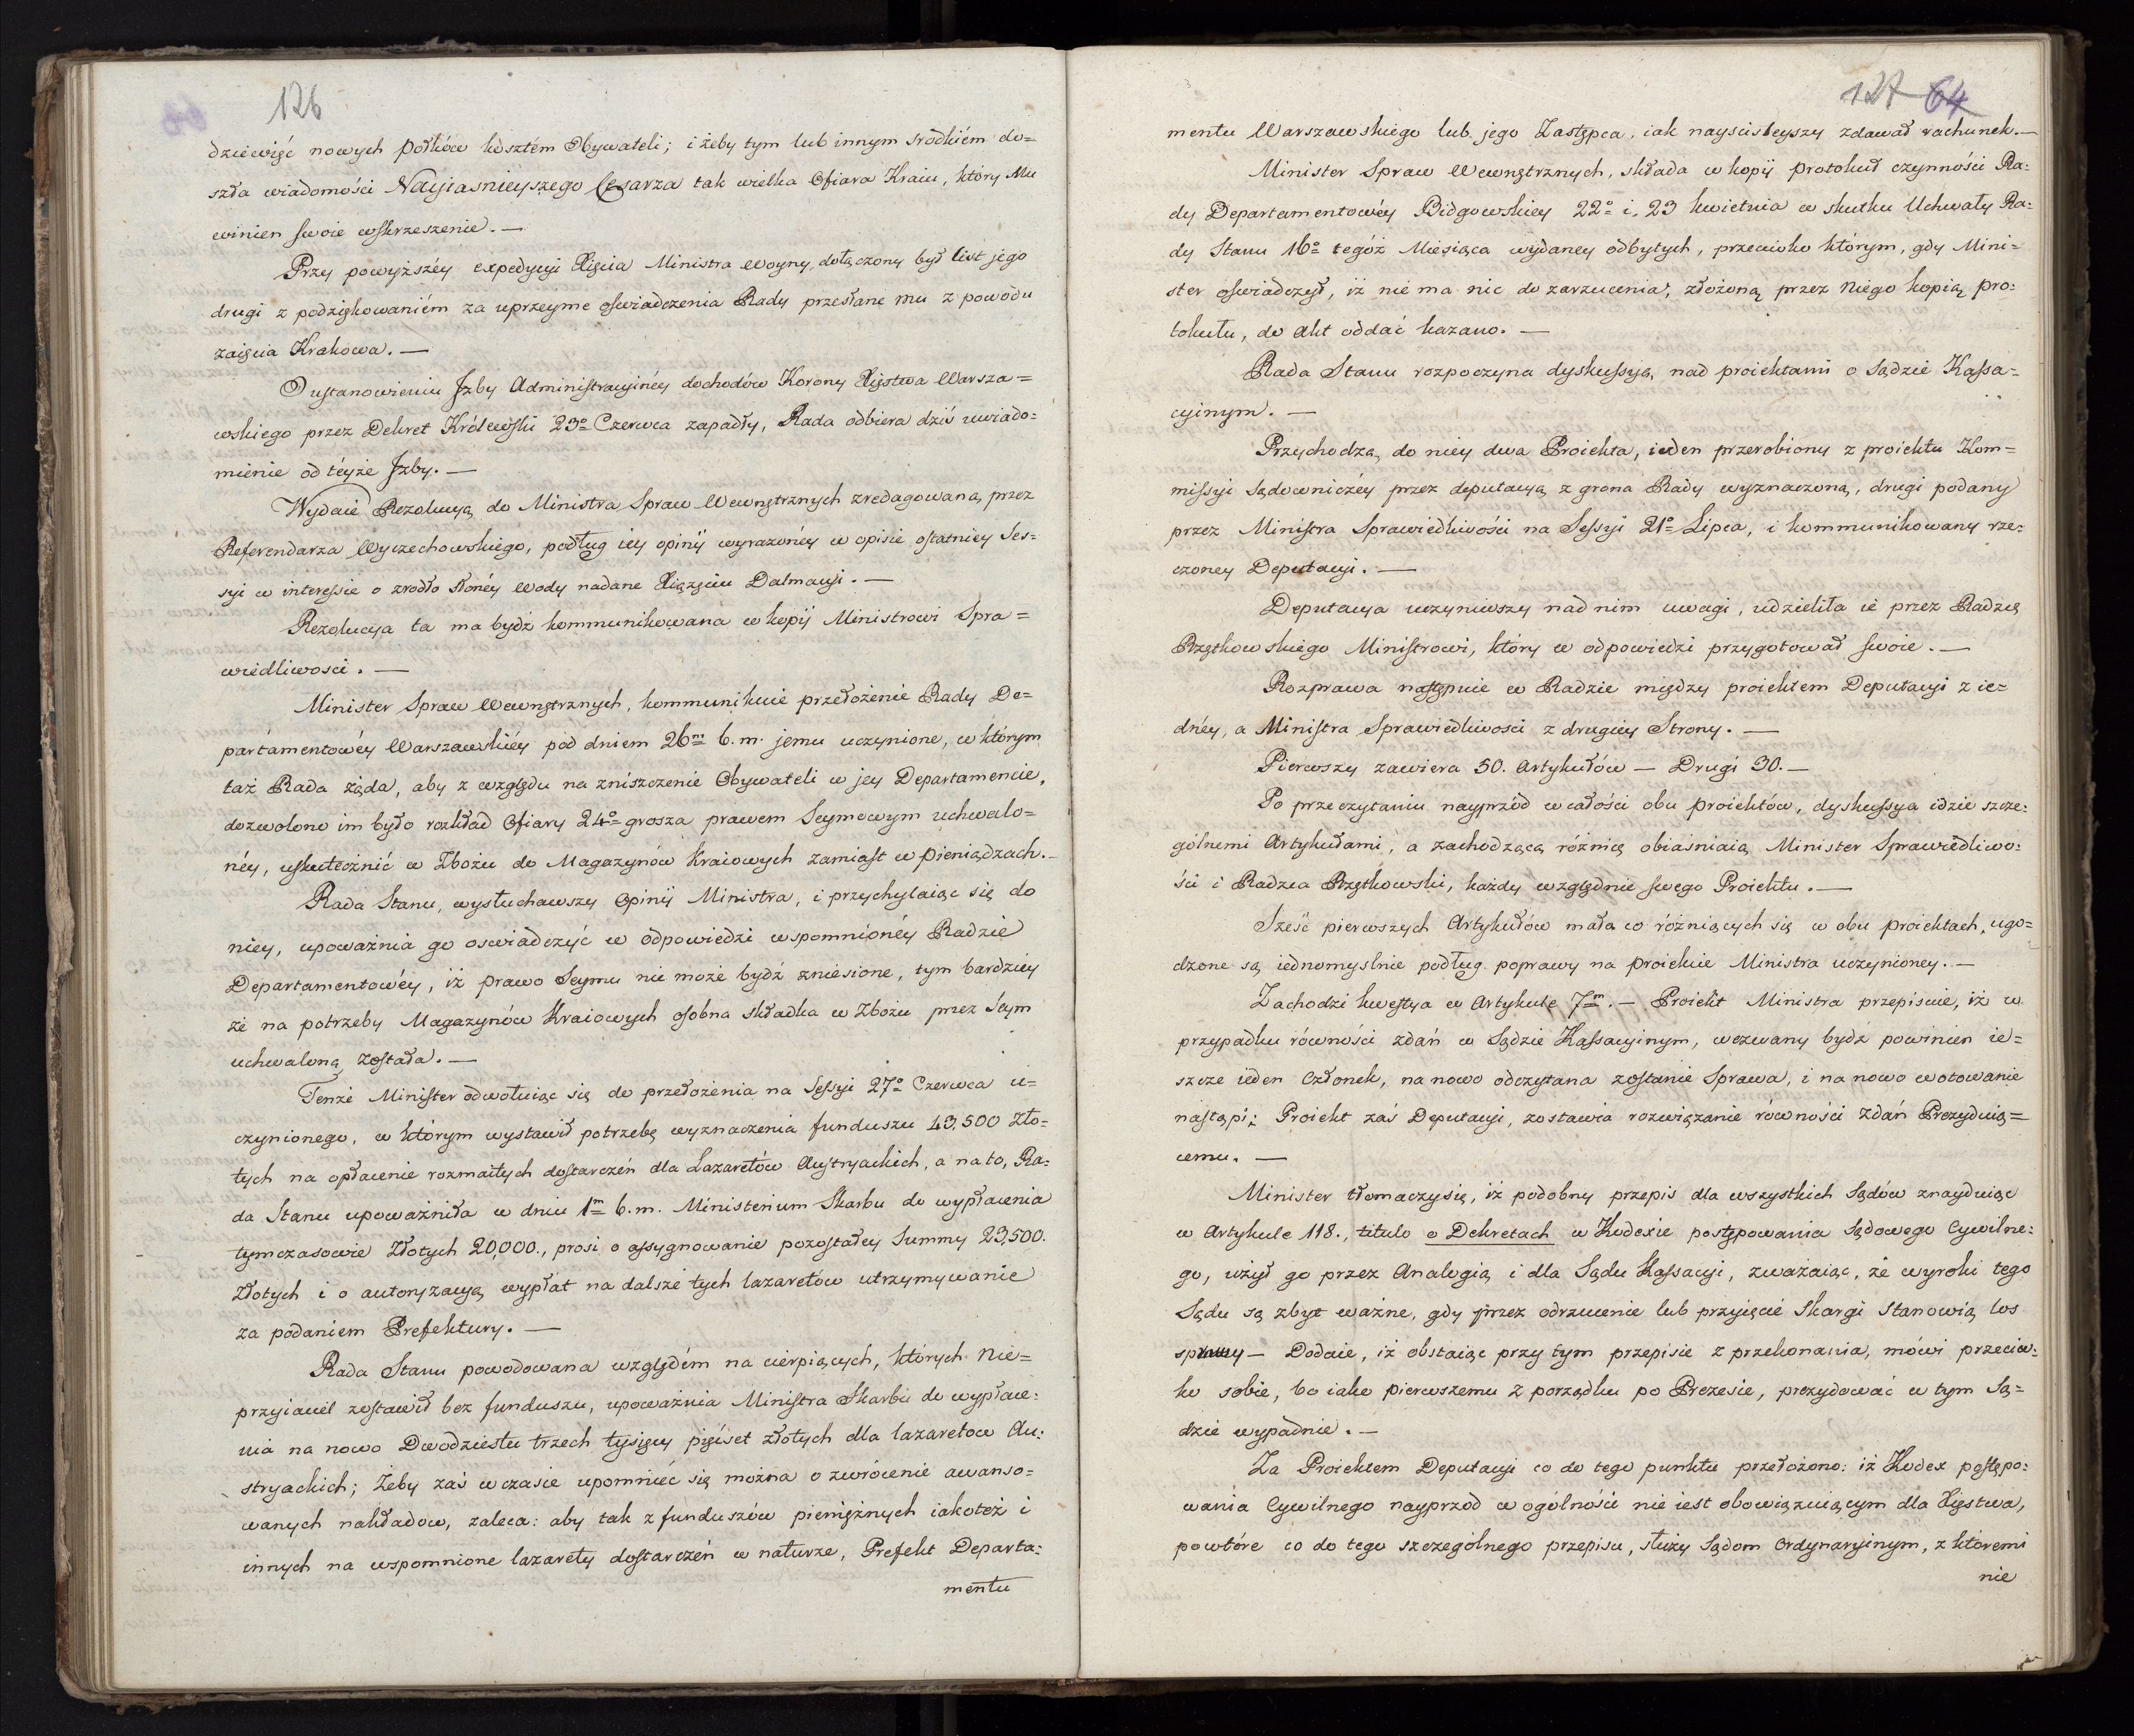 126
dziewięć nowych połków kosztém Obywateli; i żeby tym lub innym srodkiém do=
szła wiadomości Nayiasnieyszego Cesarza tak wielka Ofiara Kraiu, który Mu
winien swoie wskrzeszenie. —
Przy powyższéy expedycyi Xięcia Ministra Woyny, dołączony był list jego
drugi z podziękowaniém za uprzeyme oswiadczenia Rady przesłane mu z powodu
zaięcia Krakowa. —
O ustanowieniu Jzby Administracyinéy dochodów Korony Xięstwa Warsza=
wskiego przez Dekret Królewski 23º Czerwca zapadły, Rada odbiera dziś uwiado=
mienie od téyże Jzby. —
Wydaie Rezolucyą do Ministra Spraw Wewnętrznych zredagowaną przez
Referendarza Wyczechowskiego, podług iéy opinij wyrażonéy w opisie ostatniéy Ses=
syi w interessie o zrodło słonéy Wody nadane Xiążęciu Dalmacyi. —
Rezolucya ta ma bydź kommunikowana w kopij Ministrowi Spra=
wiedliwosci. —
Minister Spraw Wewnętrznych, kommunikuie przełożenie Rady De=
partamentowéy Warszawskiéy pod dniem 26m b. m. jemu uczynione, w którym
taż Rada żąda, aby z względu na zniszczenie Obywateli w jey Departamencie,
dozwolono im było rozkład Ofiary 24º grosza prawem Seymowym uchwalo=
néy, uskutecznić w Zbożu do Magazynów Kraiowych zamiast w pieniądzach. —
Rada Stanu, wysłuchawszy Opinij Ministra, i przychylaiąc się do
niey, upoważnia go oswiadczyć w odpowiedzi wspomnionéy Radzie
Departamentowéy, iż prawo Seymu nie może bydź zniesione, tym bardziéy
że na potrzeby Magazynów Kraiowych osobna składka w Zbożu przez Seym
uchwaloną została. —
Tenże Minister odwołuiąc się do przełożenia na Sessyi 27º Czerwca u=
czynionego, w którym wystawił potrzebę wyznaczenia funduszu 43,500 Zło=
tych na opłacenie rozmaitych dostarczeń dla Lazaretów Austryackich, a na to, Ra=
da Stanu upoważniła w dniu 1m b. m. Ministerium Skarbu do wypłacenia
tymczasowie Złotych 20,000., prosi o assygnowanie pozostałey Summy 23,500.
Złotych i o autoryzacyą wypłat na dalsze tych lazaretów utrzymywanie
za podaniem Prefektury. —
Rada Stanu powodowana względém na cierpiących, których Nie=
przyiaciel zostawił bez funduszu, upoważnia Ministra Skarbu do wypłace=
nia na nowo Dwodziestu trzech tysięcy pięćset złotych dla lazaretow Au=
stryackich; żeby zaś w czasie upomnieć się można o zwrócenie awanso=
wanych nakładow, zaleca: aby tak z funduszów pieniężnych iakoteż i
innych na wspomnione lazarety dostarczeń w naturze, Prefekt Departa=
mentu
127 64
mentu Warszawskiego lub jego Zastępca, iak nayscisleyszy zdawał rachunek. —
Minister Spraw Wewnętrznych, składa w kopij protokuł czynności Ra=
dy Departamentowéy Bidgowskiey 22º i 23 kwietnia w skutku Uchwały Ra=
dy Stanu 16º tegóż Miesiąca wydaney odbytych, przeciwko którym, gdy Mini=
ster oswiadczył, iż nie ma nic do zarzucenia, złożoną przez Niego kopią pro=
tokułu, do akt oddać kazano. —
Rada Stanu rozpoczyna dyskussyą, nad proiektami o Sądzie Kassa=
cyinym. —
Przychodzą do niey dwa Proiekta, ieden przerobiony z proiektu Kom=
missyi Sądowniczéy przez deputacyą z grona Rady wyznaczoną, drugi podany
przez Ministra Sprawiedliwości na Sessyi 21º Lipca, i kommunikowany rze=
czoney Deputacyi. —
Deputacya uczyniwszy nad nim uwagi, udzieliła ie przez Radzcę
Rzętkowskiego Ministrowi, który w odpowiedzi przygotował swoie. —
Rozprawa następuie w Radzie między proiektem Deputacyi z ie=
dnéy, a Ministra Sprawiedliwosci z drugiéy Strony. —
Pierwszy zawiera 50. Artykułów — Drugi 30. —
Po przeczytaniu nayprzód w całości obu proiektów, dyskussya idzie szcze=
gólnemi Artykułami, a zachodzącą różnicę obiaśniaią Minister Sprawiedliwo=
ści i Radzca Rzętkowski, każdy względnie swego Proiektu. —
Sześć pierwszych Artykułów mało co różniących się w obu proiektach, ugo=
dzone są iednomyslnie podług poprawy na proiekcie Ministra uczynioney. —
Zachodzi kwestya w Artykule 7m. — Proiekt Ministra przepisuie, iż w
przypadku równości zdań w Sądzie Kassacyinym, wezwany bydź powinien ie=
szcze ieden Członek, na nowo odczytana zostanie Sprawa, i na nowo wotowanie
nastąpi; Proiekt zaś Deputacyi, zostawia rozwiązanie równości zdań Prezyduią=
cemu. —
Minister tłomaczy się, iż podobny przepis dla wszystkich Sądów znayduiąc
w Artykule 118., titulo o Dekretach w Kodexie postępowania Sądowego Cywilne=
go, użył go przez Analogią i dla Sądu Kassacyi, zważaiąc, że wyroki tego
Sądu są zbyt ważne, gdy przez odrzucenie lub przyięcie Skargi stanowią los
sprawy — Dodaie, iż obstaiąc przy tym przepisie z przekonania, mówi przeciw=
ko sobie, bo iako pierwszemu z porządku po Prezesie, prezydować w tym Są=
dzie wypadnie. —
Za Proiektem Deputacyi co do tego punktu przełożono: iż Kodex postępo=
wania Cywilnego nayprzód w ogólności nie iest obowiązuiącym dla Xięstwa,
powtóre co do tego szczególnego przepisu, służy Sądom Ordynaryinym, z któremi
nie